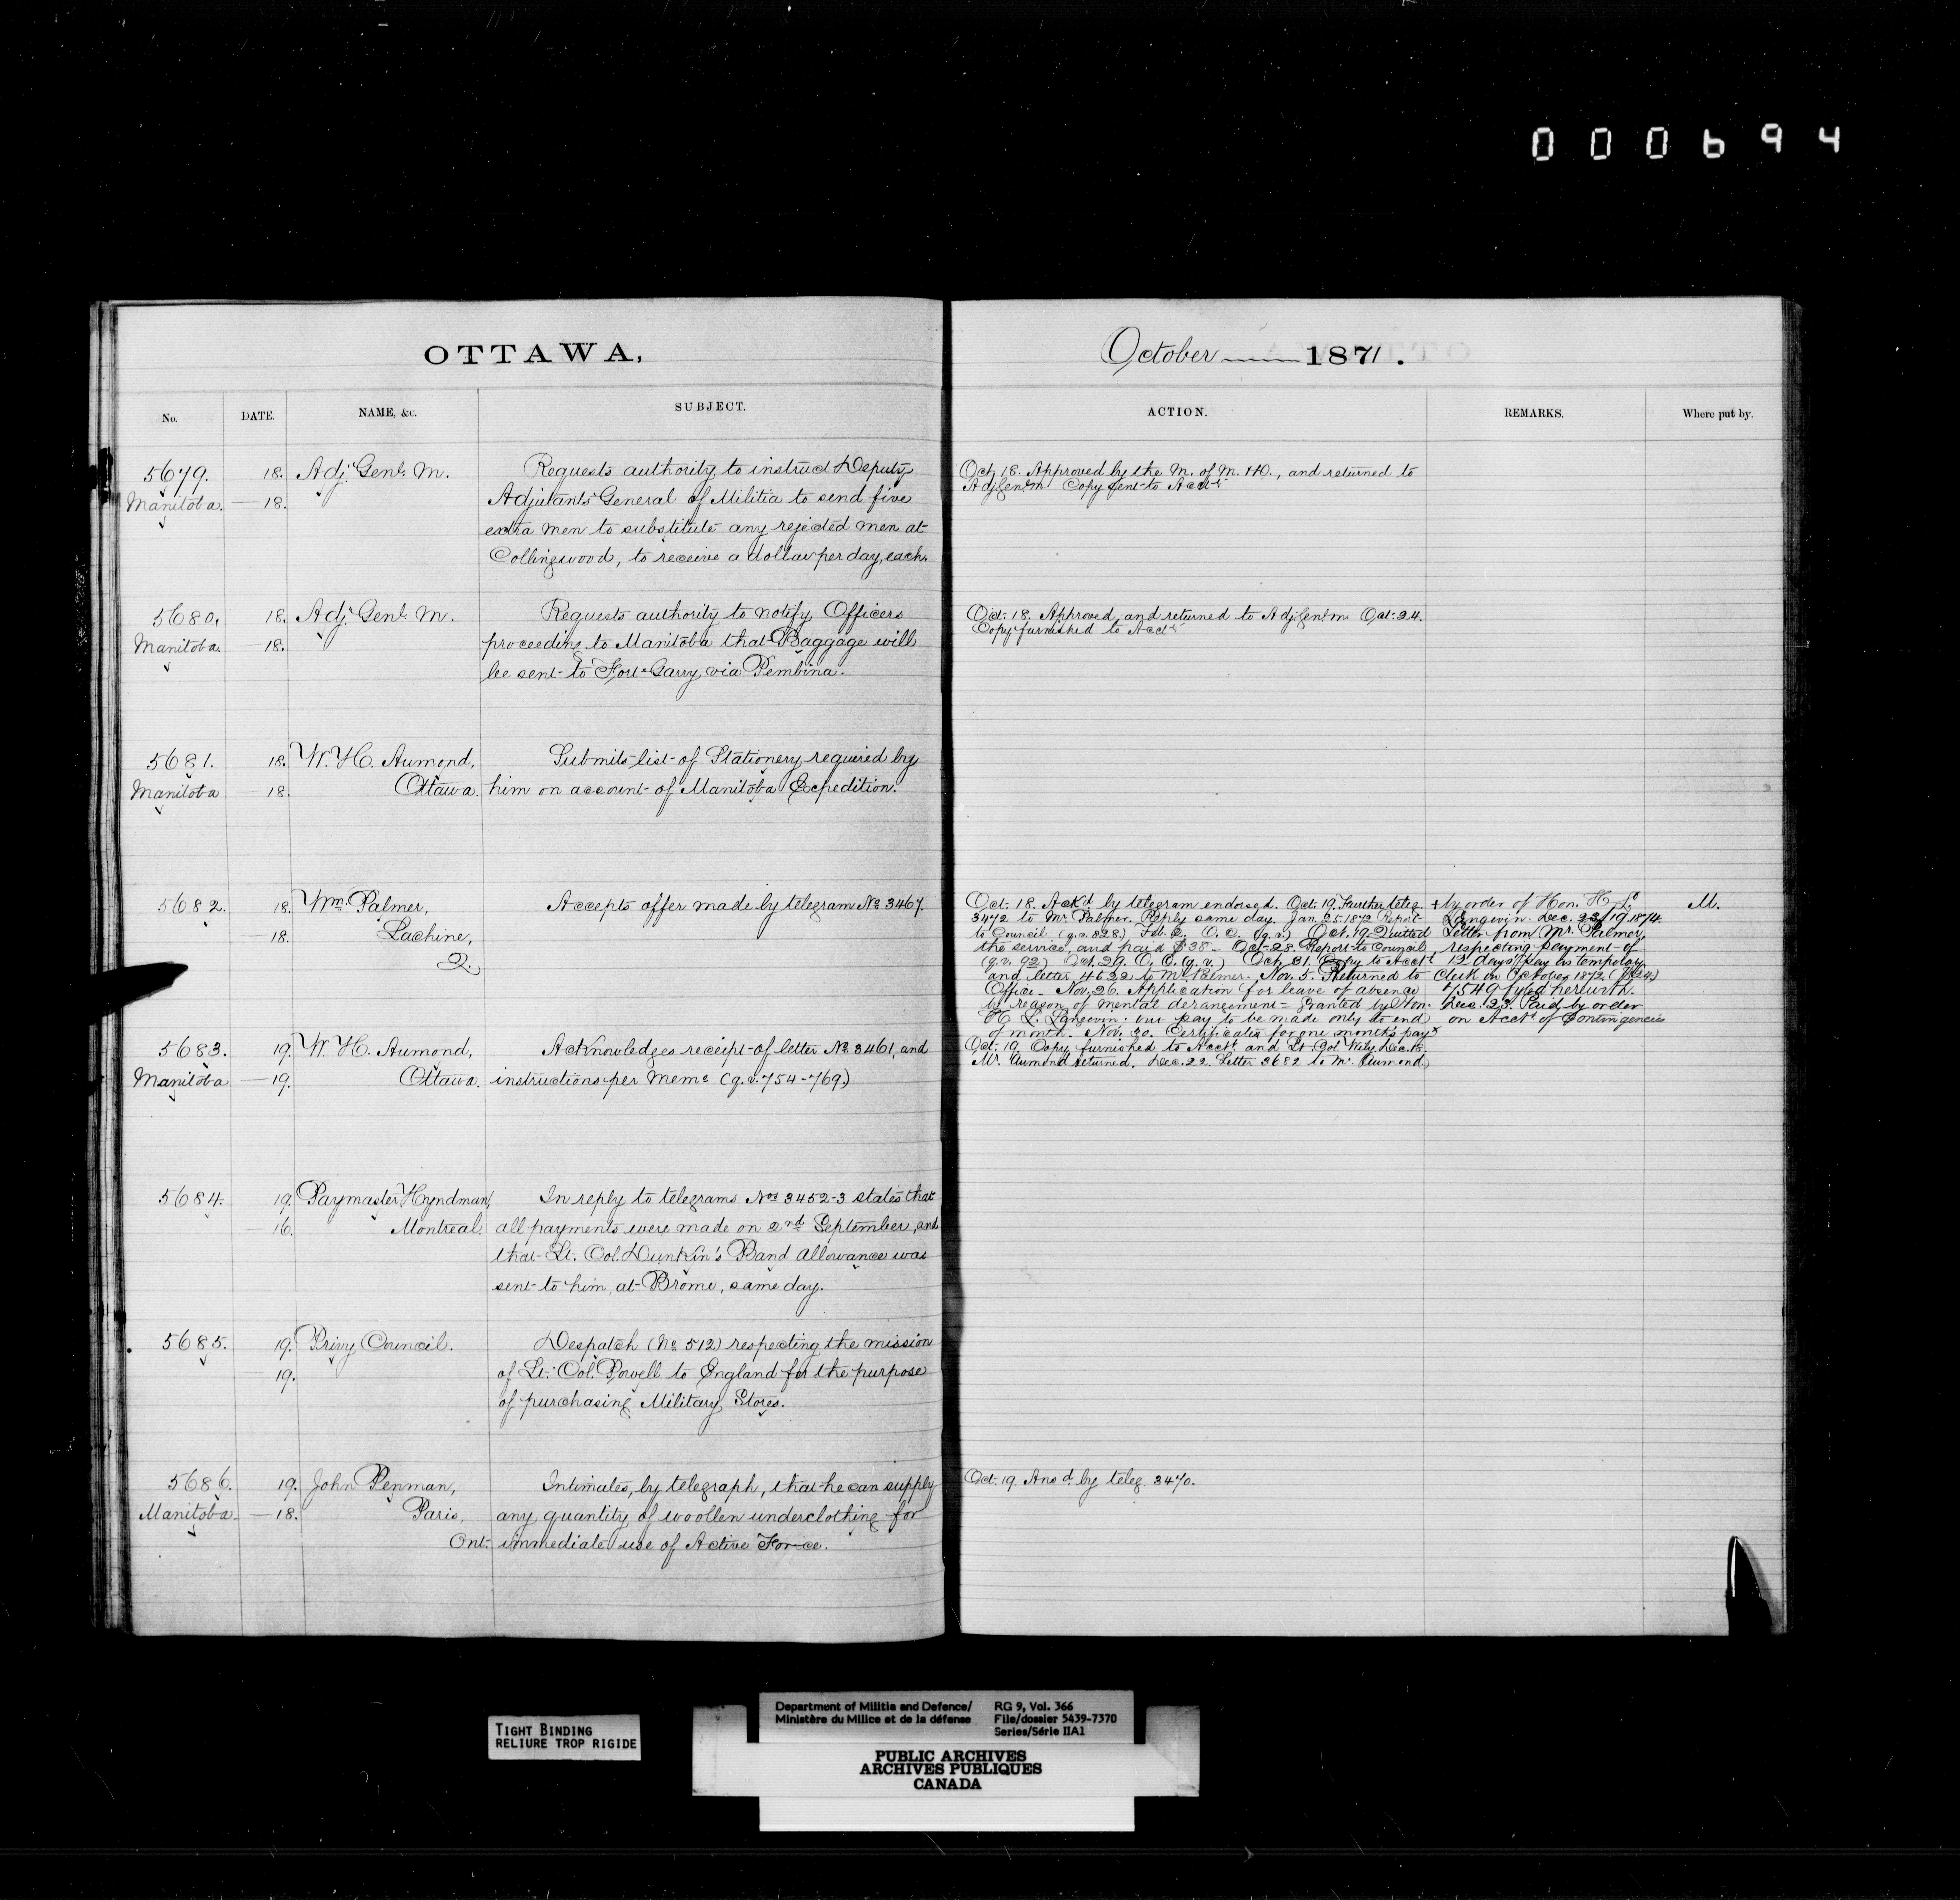 000694
OTTAWA,
October 1871.
No. DATE. NAME, &c. SUBJECT.
ACTION. REMARKS. Where put by.
5679. 18. Adjt. Genl. M. Requests authority to instruct Deputy
Manitoba — 18. Adjutants General of Militia to send five
extra men to substitute any rejected men at
Collingwood, to receive a dollar per day, each.
Oct. 18. Approved by the M. of M. &D., and returned to
Adj. Genl. M. Copy sent to Acct.
5680. 18. Adjt. Genl. M. Requests authority to notify Officers
Manitoba. — 18. proceeding to Manitoba that Baggage will
be sent to Fort Garry, via Pembina.
Oct. 18. Approved, and returned to Adj. Genl. M. Oct. 24.
Copy furnished to Acct.
5681. 18. W. H. Aumond, Submits list of Stationery required by
Manitoba 18. Ottawa. him on account of Manitoba Expedition.
5682. 18. Wm. Palmer, Accepts offer made by telegram No. 3467.
— 18. Lachine,
Q.
Oct. 18. Ackd. by telegram endorsed. Oct. 19. Further teleg.
3472 to Mr. Palmer. Reply same day. Jan. 25. 1872 Report
to Council (q.v. 828.) Feb. 6. O. C. (q.v.) Oct. 19. Quitted
the service, and paid $38. Oct. 28. Report to Council
(q.v. 92) Oct. 29. O. C. (q.v.) Oct. 31. Copy to Acct.
and letter 4622 to Mr. Palmer. Nov. 5. Returned to
Office. Nov. 26. Application for leave of absence
by reason of mental derangement = Granted by Hon.
H. L. Langevin; but pay to be made only to end
of month. Nov. 30. Certificates for one month's pay x
+ by order of Hon. H. L.
Langevin. Dec. 22/19. 1874.
Letter from Mr. Palmer,
respecting payment of
12 days' pay as temporary
Clerk in October 1872
7549 fyled herewith.
Dec. 23. Paid by order
on Acct. of Contingencies
M.
5683. 19. W. H. Aumond, Acknowledges receipt of letter No. 3461, and
Manitoba — 19. Ottawa. instructions per Memo. (q.v. 754-769.)
Oct. 19. Copy furnished to Acct. and Lt. Col. Wily. Dec. 15.
Mr. Aumond returned. Dec. 22. Letter 3682 to Mr. Aumond.
5684. 19. Paymaster Hyndman, In reply to telegrams Nos. 3452-3 states that
— 16. Montreal. all payments were made on 2nd September, and
that Lt. Col. Dunkin's Band allowance was
sent to him, at Brome, same day.
5685. 19. Privy Council. Despatch (No. 512) respecting the mission
19. of Lt. Col. Powell to England for the purpose
of purchasing Military Stores.
5686. 19. John Penman, Intimates, by telegraph, that he can supply
Manitoba — 18. Paris, any quantity of woollen underclothing for
Ont. immediate use of Active Force.
Oct. 19. Ansd. by teleg. 3470.
TIGHT BINDING
RELIURE TROP RIGIDE
Department of Militia and Defence/
Ministère du Milice et de la défense
RG 9, Vol. 366
File/dossier 5439-7370
Series/Série IIA1
PUBLIC ARCHIVES
ARCHIVES PUBLIQUES
CANADA